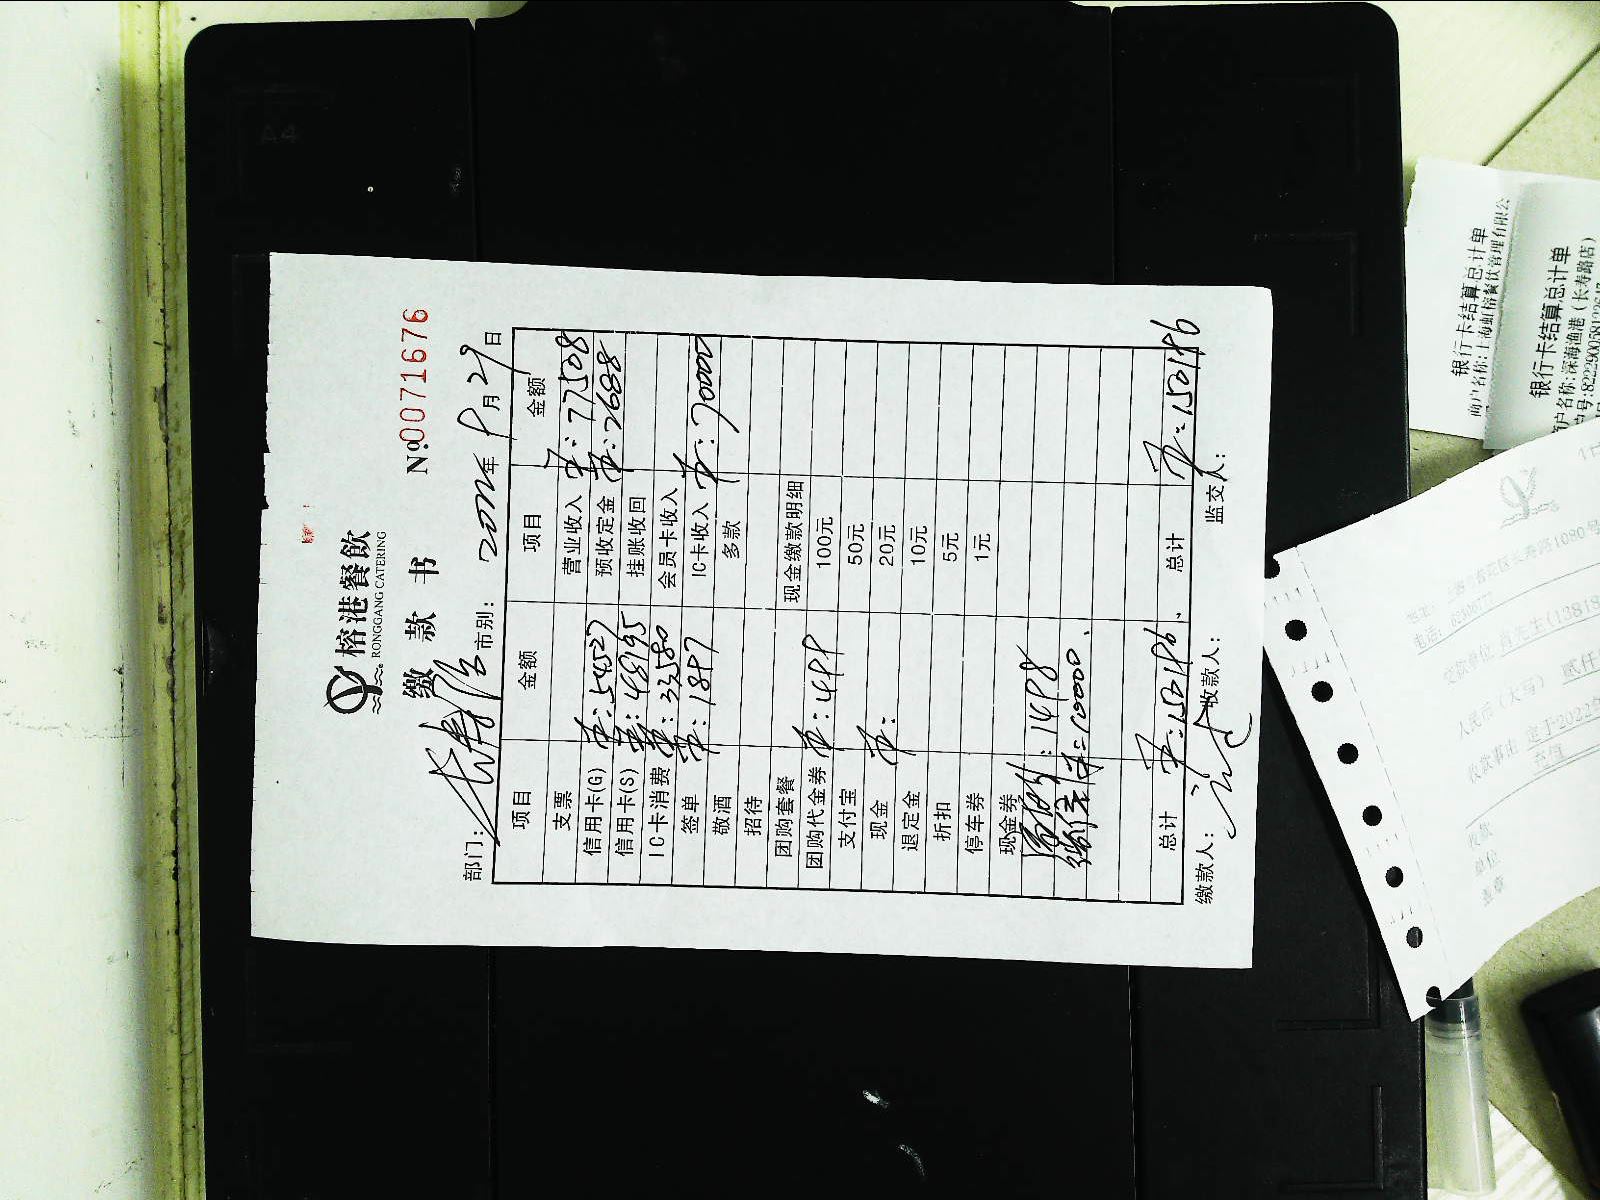 榕港餐飲
RONGGANG CATERING
缴 款 书
No.0071676
部门：长寿店 市别： 年 9 月 29 日
项目 金额 项目 金额
支票 营业收入 ：77508
信用卡(G) ：54527 预收定金 ：2688
信用卡(S) ：48195 挂账收回
IC卡消费 ：33580 会员卡收入
签单 ：1897 IC卡收入 ：70000
敬酒 多款
招待
团购套餐 现金缴款明细
团购代金券 ：499 100元
支付宝 50元
现金 ： 20元
退定金 10元
折扣 5元
停车券 1元
现金券
：1498
：10000
总计 ：150196 总计 ：150196
缴款人： 收款人： 监交人：
银行卡结算总计单
商户名称:上海虹榕餐饮管理有限公
银行卡结算总计单
户名称:深海渔港（长寿路店）
长寿路1080号
人民币（大写） 贰仟
收款事由 定于2022年
充值
收款
单位
盖章